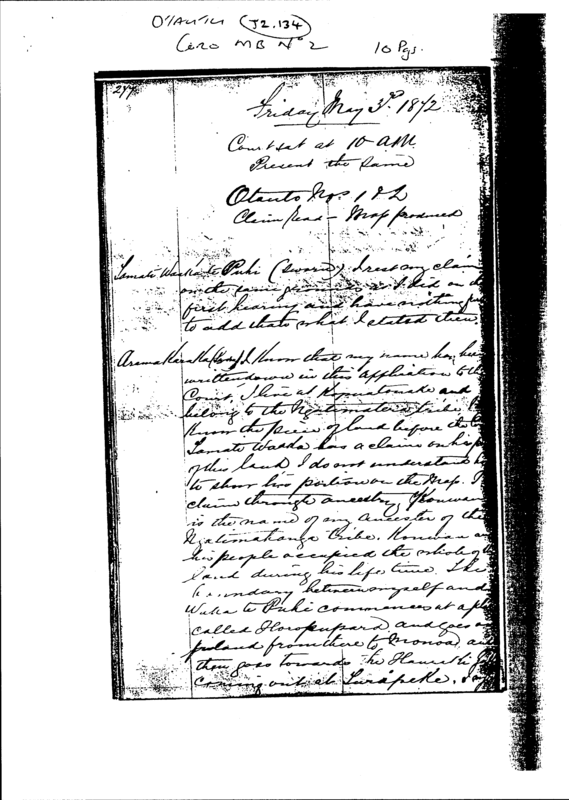 O'TAUTU J2.134
CORO MB No 2
10 Pgs.
277
Friday May 3d. 1872
Court sat at 10 AM
Present the same
Otautu Nos 1 & 2
Claim read - Map produced
Tamati Waaka te Puhi (sworn) I rest my claim
on the same grounds as I did on
first hearing and have nothing
to add thats what I stated then
I know that my name has been
written down in this application to the
Court. I live at and
belong to the tribe
Know the piece of land before the
Tamati Waaka has a claim on his
of this land I do not understand
to show his portion on the Map. I
claim through ancestry.
is the name of my Ancestor of the
Tribe. and
his people occupied the whole of
Land during his life time. The
boundary between myself and
Waka te Puhi commences at a
called and goes
inland from there to and
then goes towards the Hauraki
coming out at